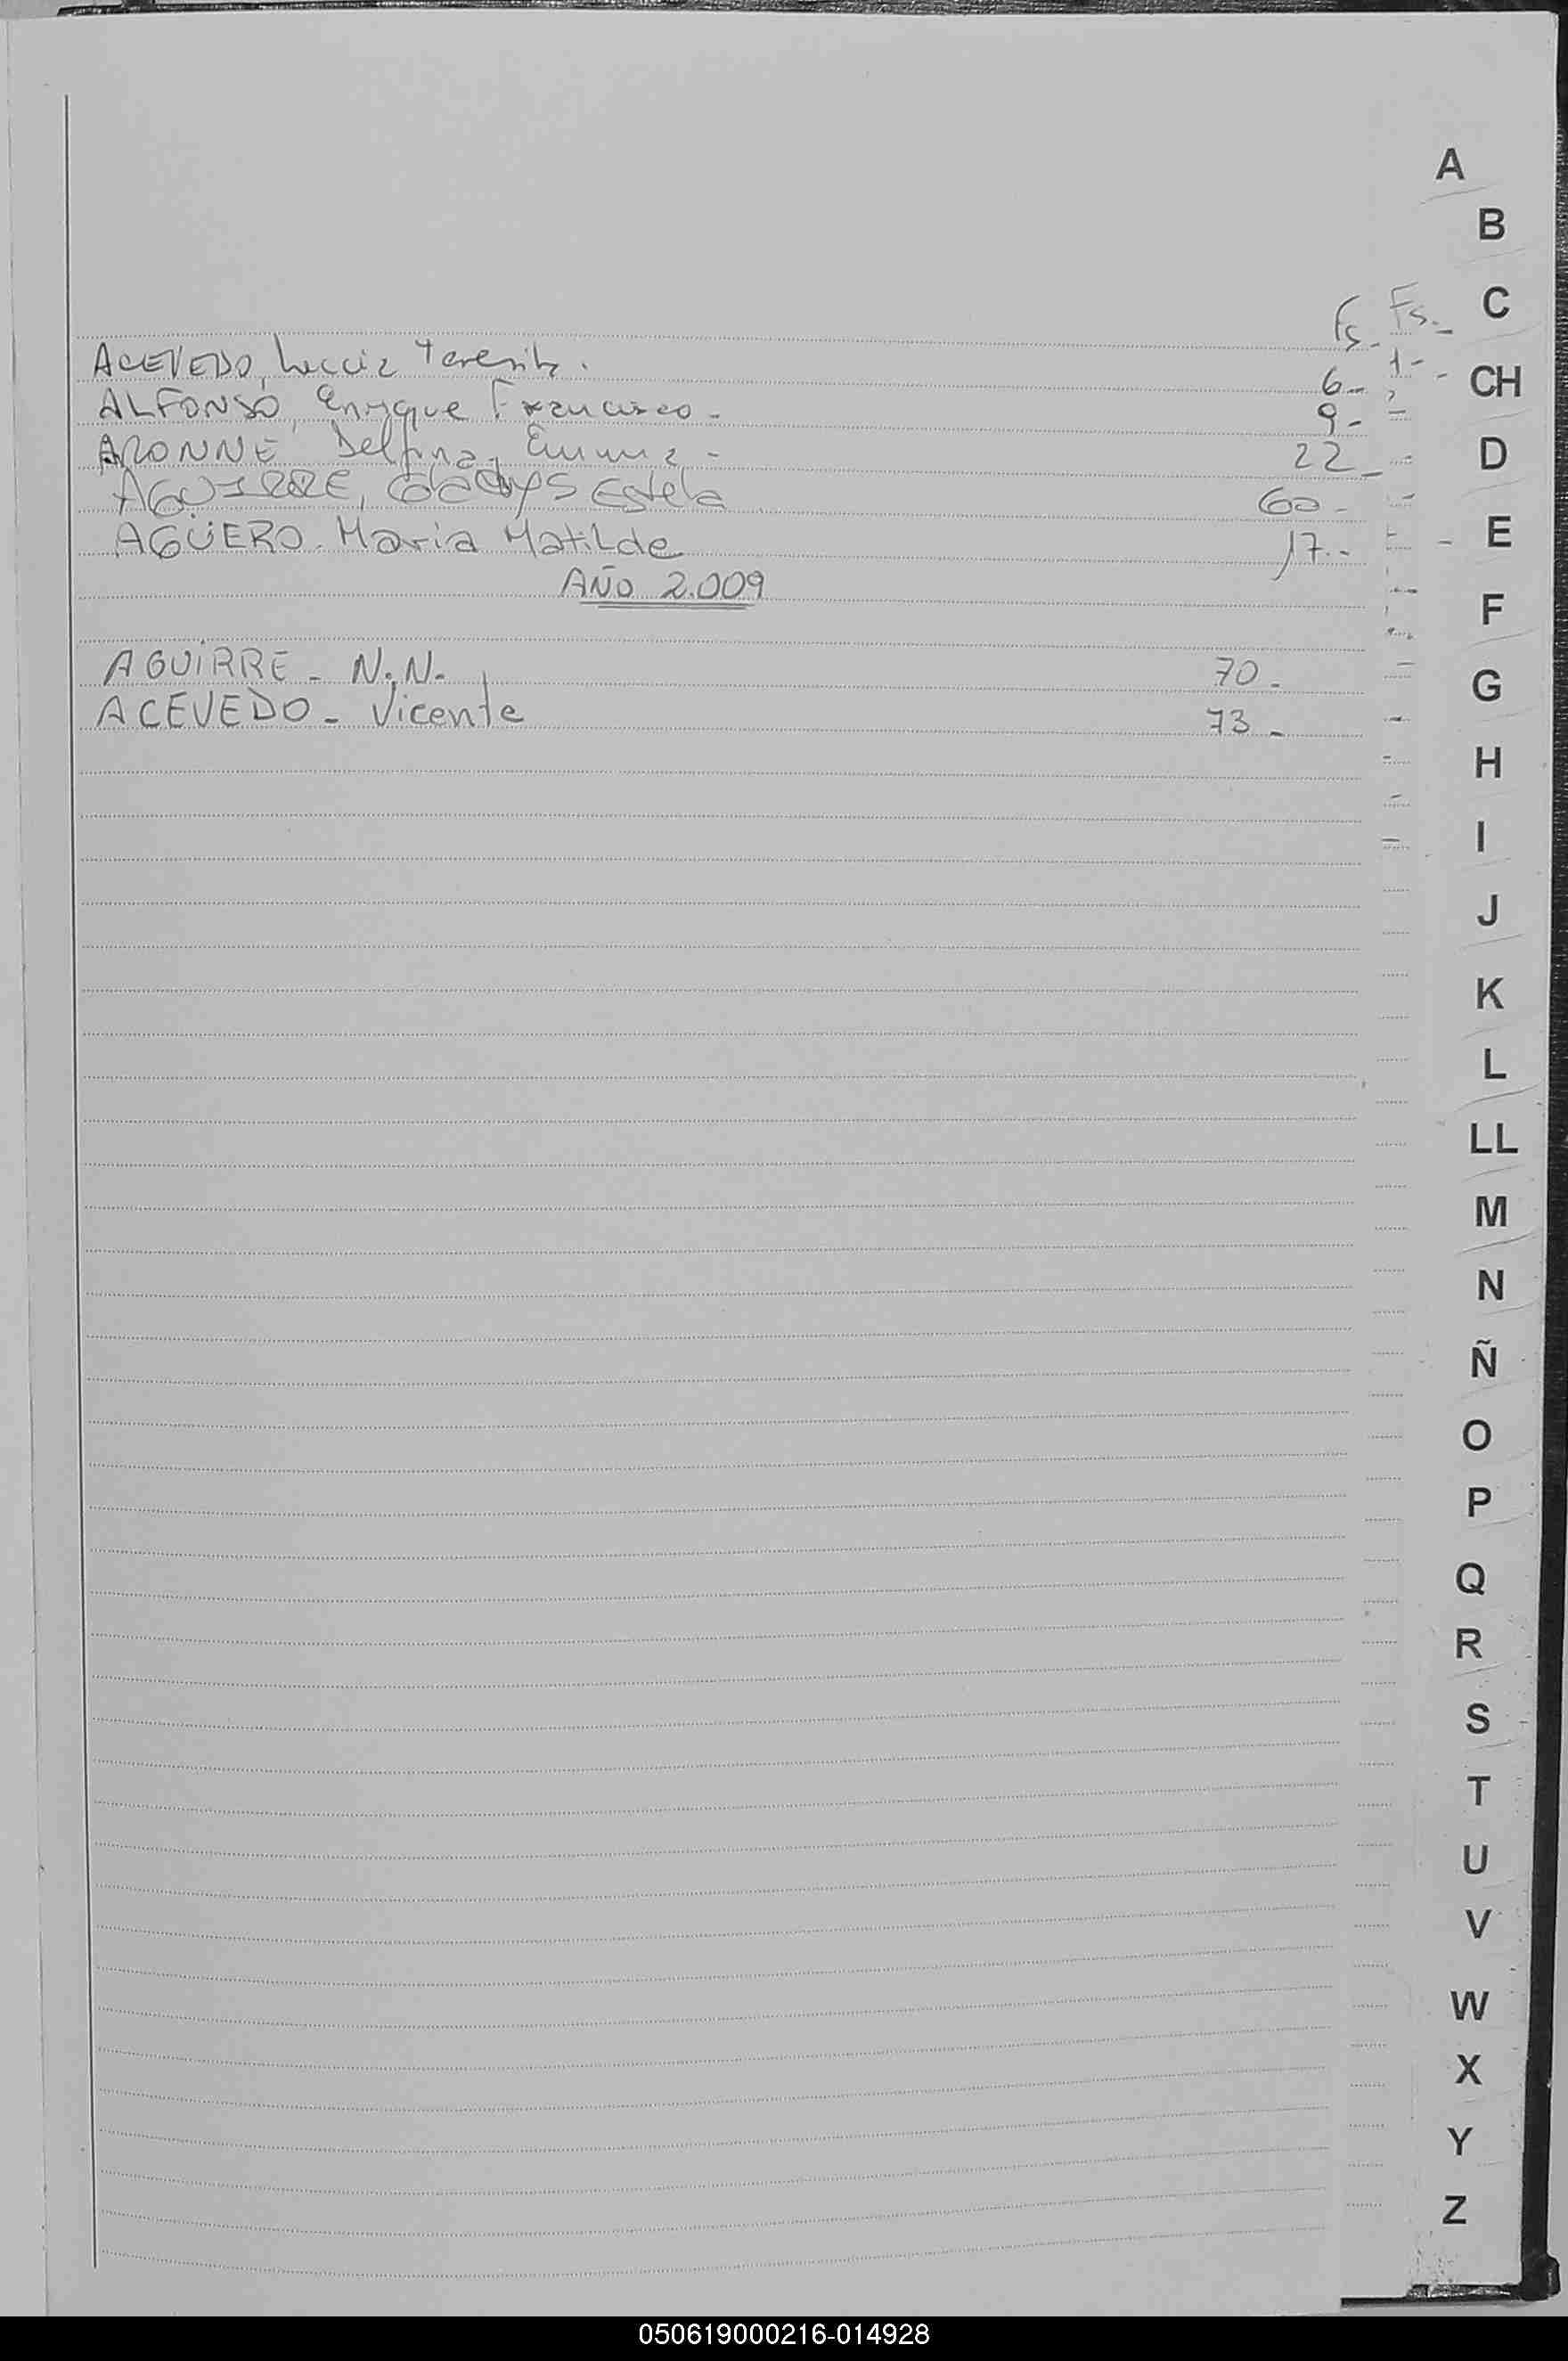 A
B
C
Fs. Fs.
ACEVEDO, Lucia Teresita. 6- 1-
CH
ALFONSO, Enrique Francisco - 9-
ARONNE, Delfina Emma - 22-
D
AGUIRRE, Gladys Estela 60-
AGÜERO. Maria Matilde 17.-
E
AÑO 2.009
F
AGUIRRE - N.N. 70-
G
ACEVEDO - Vicente 73-
H
I
J
K
L
LL
M
N
Ñ
O
P
Q
R
S
T
U
V
W
X
Y
Z
050619000216-014928